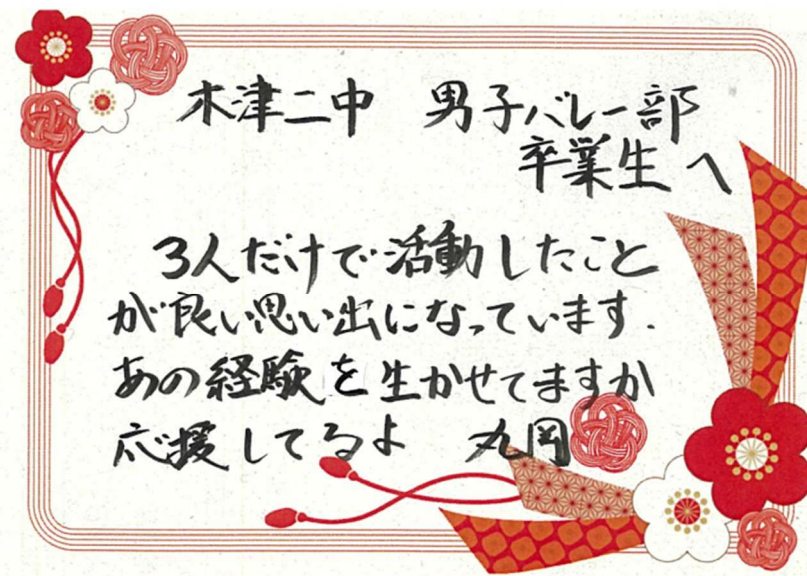 木津二中 男子バレー部
卒業生へ
3人だけで活動したこと
が良い思い出になっています.
あの経験を生かせてますか
応援してるよ 丸岡